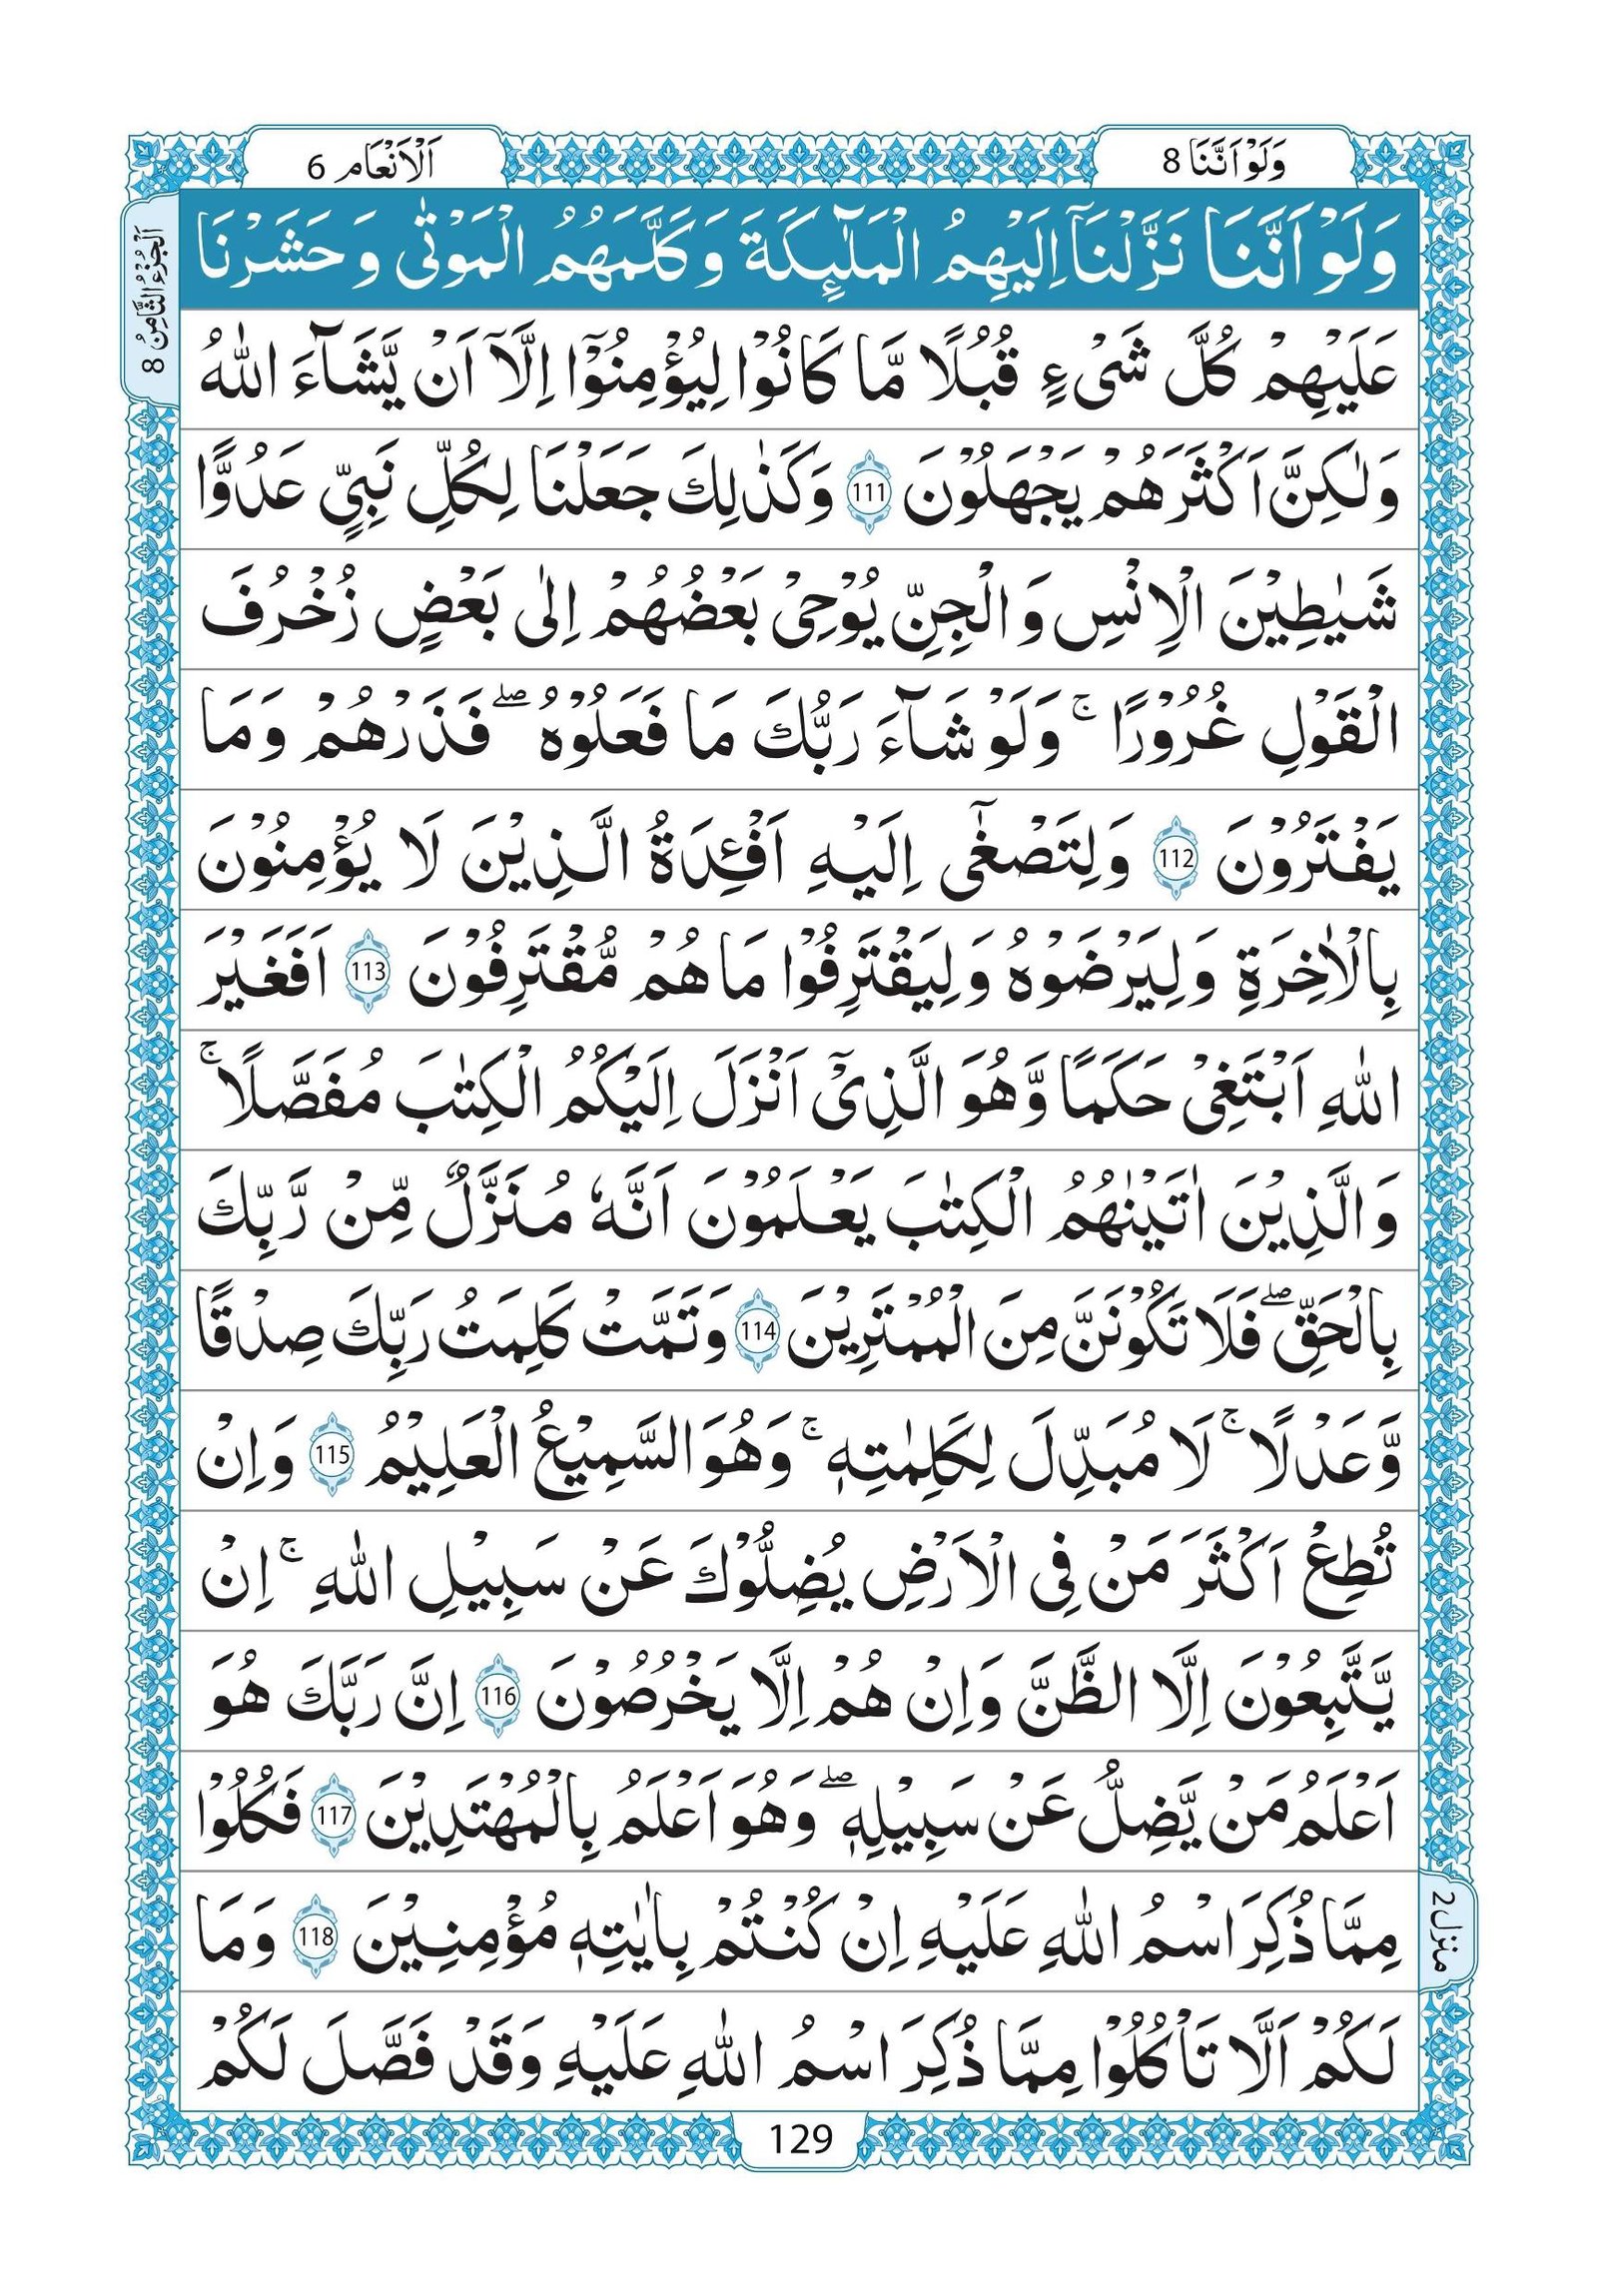 وَلَوْ اَنَّنَا 8
اَلْاَنْعَام 6
اَلْجُزْءُ الثَّامِنُ 8
وَلَوْ اَنَّنَا نَزَّلْنَاۤ اِلَيْهِمُ الْمَلٰٓئِكَةَ وَكَلَّمَهُمُ الْمَوْتٰى وَحَشَرْنَا
عَلَيْهِمْ كُلَّ شَیْءٍ قُبُلًا مَّا كَانُوْا لِيُؤْمِنُوْۤا اِلَّاۤ اَنْ يَّشَآءَ اللّٰهُ
وَلٰكِنَّ اَكْثَرَهُمْ يَجْهَلُوْنَ 111 وَكَذٰلِكَ جَعَلْنَا لِكُلِّ نَبِیٍّ عَدُوًّا
شَيٰطِيْنَ الْاِنْسِ وَالْجِنِّ يُوْحِیْ بَعْضُهُمْ اِلٰى بَعْضٍ زُخْرُفَ
الْقَوْلِ غُرُوْرًا ۚ وَلَوْ شَآءَ رَبُّكَ مَا فَعَلُوْهُ ۖ فَذَرْهُمْ وَمَا
يَفْتَرُوْنَ 112 وَلِتَصْغٰۤى اِلَيْهِ اَفْئِدَةُ الَّذِيْنَ لَا يُؤْمِنُوْنَ
بِالْاٰخِرَةِ وَلِيَرْضَوْهُ وَلِيَقْتَرِفُوْا مَا هُمْ مُّقْتَرِفُوْنَ 113 اَفَغَيْرَ
اللّٰهِ اَبْتَغِیْ حَكَمًا وَّهُوَ الَّذِیْۤ اَنْزَلَ اِلَيْكُمُ الْكِتٰبَ مُفَصَّلًا ۚ
وَالَّذِيْنَ اٰتَيْنٰهُمُ الْكِتٰبَ يَعْلَمُوْنَ اَنَّهٗ مُنَزَّلٌ مِّنْ رَّبِّكَ
بِالْحَقِّ ۖ فَلَا تَكُوْنَنَّ مِنَ الْمُمْتَرِيْنَ 114 وَتَمَّتْ كَلِمَتُ رَبِّكَ صِدْقًا
وَّعَدْلًا ۚ لَا مُبَدِّلَ لِكَلِمٰتِهٖ ۚ وَهُوَ السَّمِيْعُ الْعَلِيْمُ 115 وَاِنْ
تُطِعْ اَكْثَرَ مَنْ فِی الْاَرْضِ يُضِلُّوْكَ عَنْ سَبِيْلِ اللّٰهِ ۚ اِنْ
يَّتَّبِعُوْنَ اِلَّا الظَّنَّ وَاِنْ هُمْ اِلَّا يَخْرُصُوْنَ 116 اِنَّ رَبَّكَ هُوَ
اَعْلَمُ مَنْ يَّضِلُّ عَنْ سَبِيْلِهٖ ۖ وَهُوَ اَعْلَمُ بِالْمُهْتَدِيْنَ 117 فَكُلُوْا
مِمَّا ذُكِرَ اسْمُ اللّٰهِ عَلَيْهِ اِنْ كُنْتُمْ بِاٰيٰتِهٖ مُؤْمِنِيْنَ 118 وَمَا
منزل 2
لَكُمْ اَلَّا تَاْكُلُوْا مِمَّا ذُكِرَ اسْمُ اللّٰهِ عَلَيْهِ وَقَدْ فَصَّلَ لَكُمْ
129